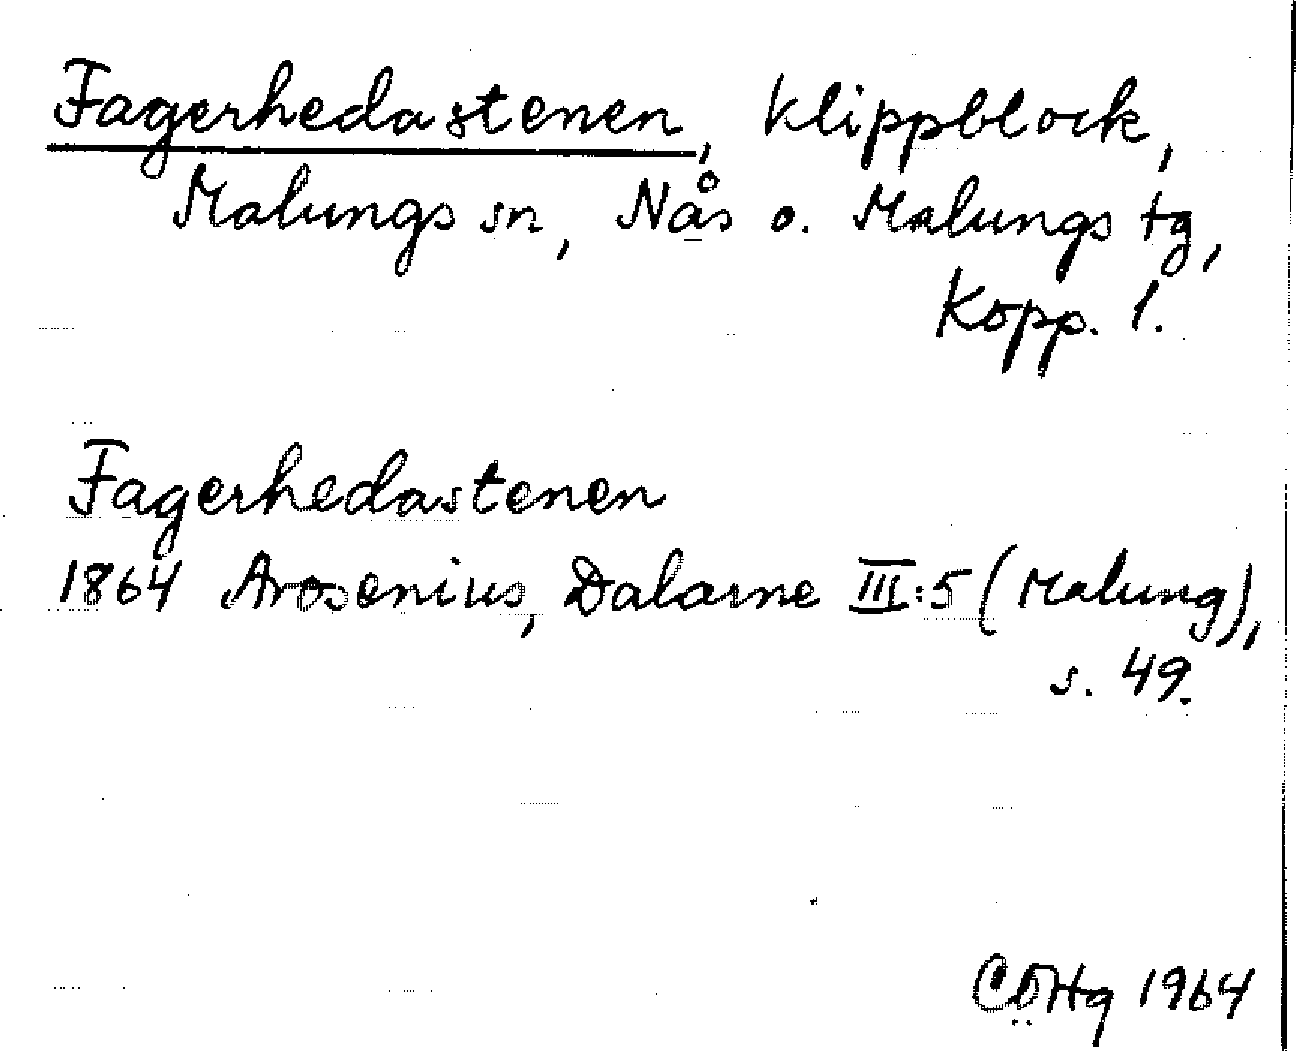 Fagerhedastenen, Klippblock,
Malungs sn, Nås o. Malungs tg,
Kopp. l.
Fagerhedastenen
1864 Arosenius, Dalarne III:5 (Malung),
s. 49.
1964